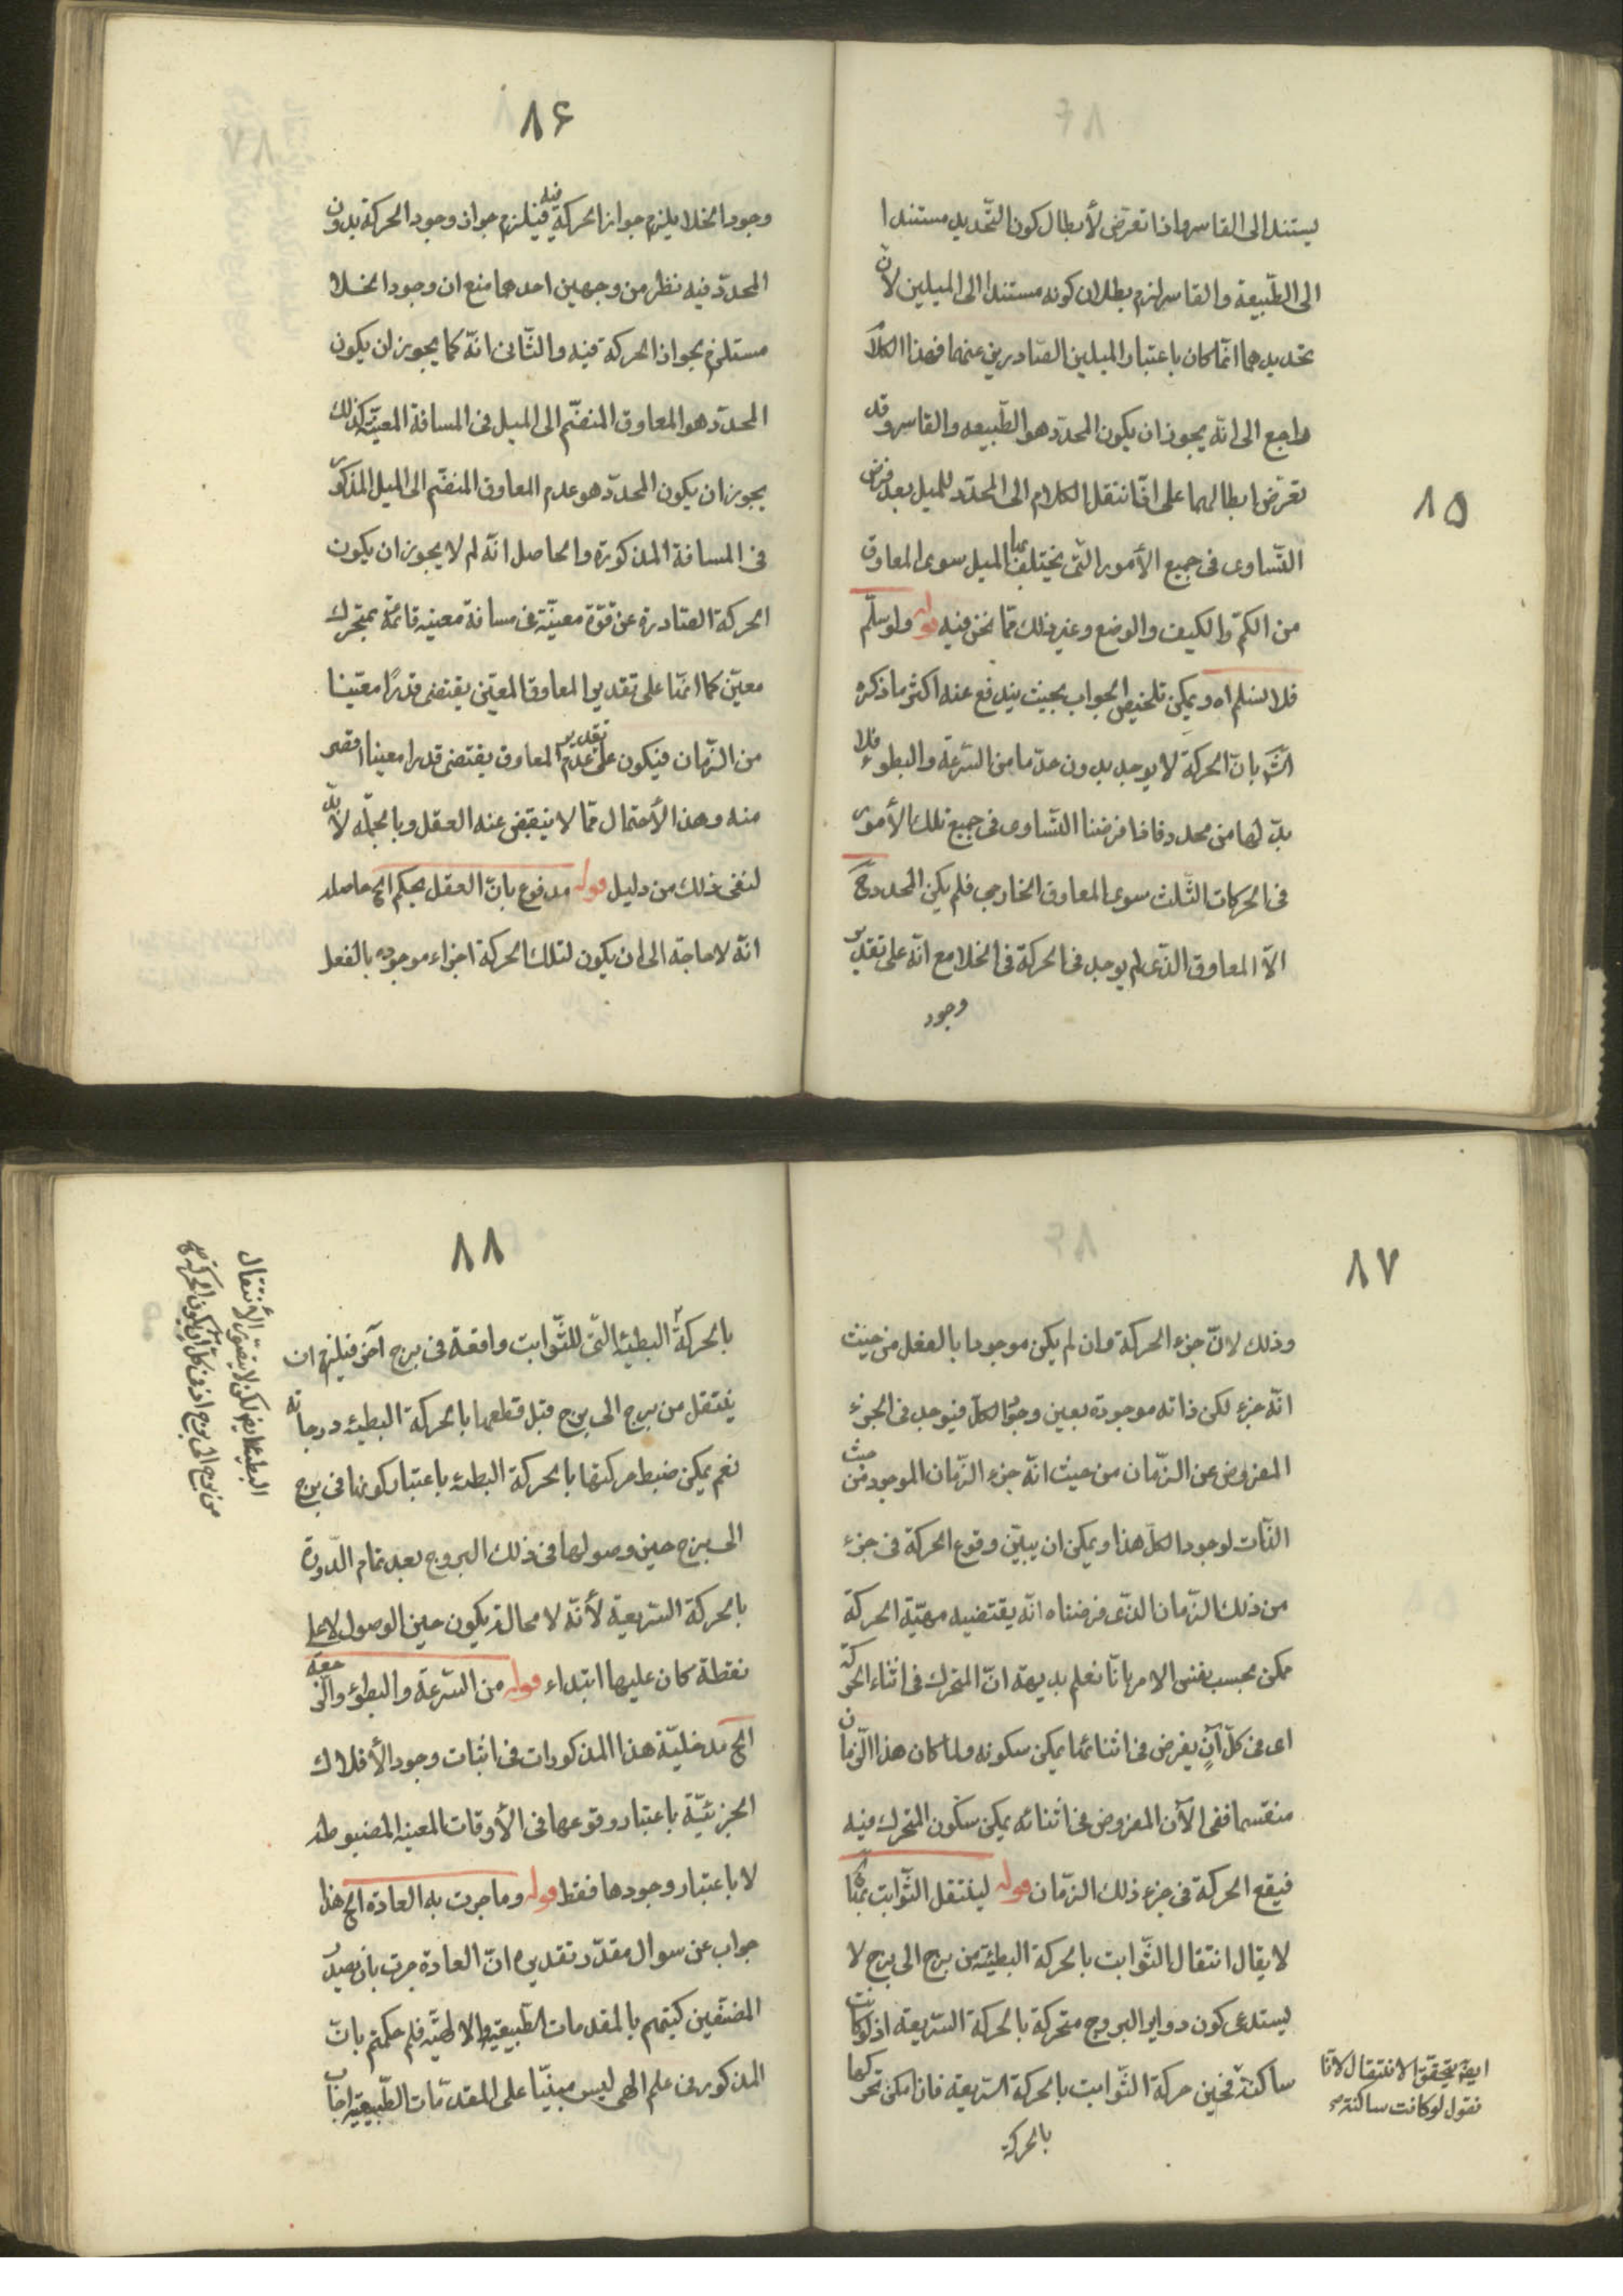 ٨٥
يستند الى القاسر واذا تعرّض لأبطال كون التّحديد مستندا
الى الطّبيعة والقاسر لزم بطلان كونه مستندا الى الميلين لانّ
تحديدهما انّما كان باعتبار الميلين الصّادرين عنهما فهذا الكلا
راجع الى انّه يجوز ان يكون المحدّد هو الطّبيعه والقاسر وقد
تعرّض ابطالهما على انّا ننتقل الكلام الى المحدّد للميل بعد فرض
التّساوى فى جميع الأمور التّى يختلف بها الميل سوى المعاوق
من الكمّ والكيف والوضع وغير ذلك ممّا نحن فيه قوله ولو سلّم
فلا نسلم اه ويمكن تلخيص الجواب بحيث يندفع عنه اكثر ما ذكره
الشّ بانّ الحركة لا يوجد بدون حدّ ما من السّرعة والبطوء فلا
بدّ لها من محدد فاذا فرضنا التّساوى فى جميع تلك الأمور
فى الحركات الثّلث سوى المعاوق الخارجى فلم يكن المحدد ح
الاّ المعاوق الذّى لم يوجد فى الحركة فى الخلا مع انّه على تقدير
وجود
٨۶
وجود الخلا يلزم جواز الحركة فيه فيلزم جواز وجود الحركة بدون
المحدّد فيه نظر من وجهين احدهما منع ان وجود الخلا
مستلزم بجواز الحركة فيه والثّانى انّه كما يجوز ان يكون
المحدّد هو المعاوق المنضّم الى الميل فى المسافة المعيّنة كذلك
يجوز ان يكون المحدّد هو عدم المعاوق المنضّم الى الميل المذكور
فى المسافة المذكورة والحاصل انّه لم لا يجوز ان يكون
الحركة الصّادرة عن قوّة معيّنة فى مسافة معينه قائمة بمتحرك
معيّن كما انّها على تقدير المعاوق المعيّن يقتضى قدرًا معيّنا
من الزّمان فيكون على تقدير عدم المعاوق يقتضى قدرا معينا اقصر
منه وهذا الأحتمال ممّا لا ينقبض عنه العقل وبالجملّه لا بدّ
لنفى ذلك من دليل قوله مدفوع بانّ العقل يحكم الخ حاصله
انّه لا حاجة الى ان يكون لتلك الحركة اجزاء موجوده بالفعل
٨٧
وذلك لانّ جزء الحركة وان لم يكن موجودا بالفعل من حيث
انّه جزء لكن ذاته موجودة بعين وجود الكلّ فيوجد فى الجزء
المفروض عن الزّمان من حيث انّه جزء الزّمان الموجود من حيث
الذّات لوجود الكلّ هذا ويمكن ان يبيّن وقوع الحركة فى جزء
من ذلك الزّمان الذّى فرضناه انّه يقتضيه مهيّة الحركة
ممكن بحسب نفس الامر بانّا نعلم بديهة انّ المتحرك فى اثناء الحركة
اى فى كلّ آنٍ يفرض فى اثنائها يمكن سكونه ولما كان هذا الزّمان
منقسما ففى الآن المفروض فى اثنائه يمكن سكون المتحرك فيه
فيقع الحركة فى جزء ذلك الزّمان قوله لينتقل الثّوابت بها
لا يقال انتقال الثّوابت بالحركة البطيئة من برج الى برج لا
يستدعى كون دواير البروج متحركة بالحركة السّريعة اذ لو كانت
ساكنة فحين حركة الثّوابت بالحركة السّريعة فان امكن تحركها
بالحركة
ايضا يتحقق الانتقال لانّا
نقول لو كانت ساكنة
٨٨
بالحركة البطيئه التّى للثّوابت واقعة فى برج آخر فيلزم ان
ينتقل من برج الى برج قبل قطعها بالحركة البطيئه درجاته
نعم يمكن ضبط حركتها بالحركة البطئه باعتبار كونها فى برج
الى برج حين وصولها فى ذلك البروج بعد تمام الدّورة
بالحركة السّريعة لأنّه لا محالة يكون حين الوصول لا على
نقطة كان عليها ابتداء قوله من السّرعة والبطوء والجهة
الخ مدخليّة هذا المذكورات فى اثبات وجود الأفلاك
الجزئيّة باعتبار وقوعها فى الأوقات المعينه المضبوطه
لا باعتبار وجودها فقط قوله وما جرت به العادة الخ هذا
جواب عن سوال مقدّر تقديره انّ العادة جرت بان يصدر
المصنّفين كتبهم بالمقدمات الطّبيعيّة والالهيّة فلم حكمتم بانّ
المذكور فى علم الهى ليس مبنيّا على المقدّمات الطّبيعيّة اجاب
البطيئة ايضا لكن لا يتصوّر الأنتقال
من برج الى برج اذ فى كل ان يكون الحركة